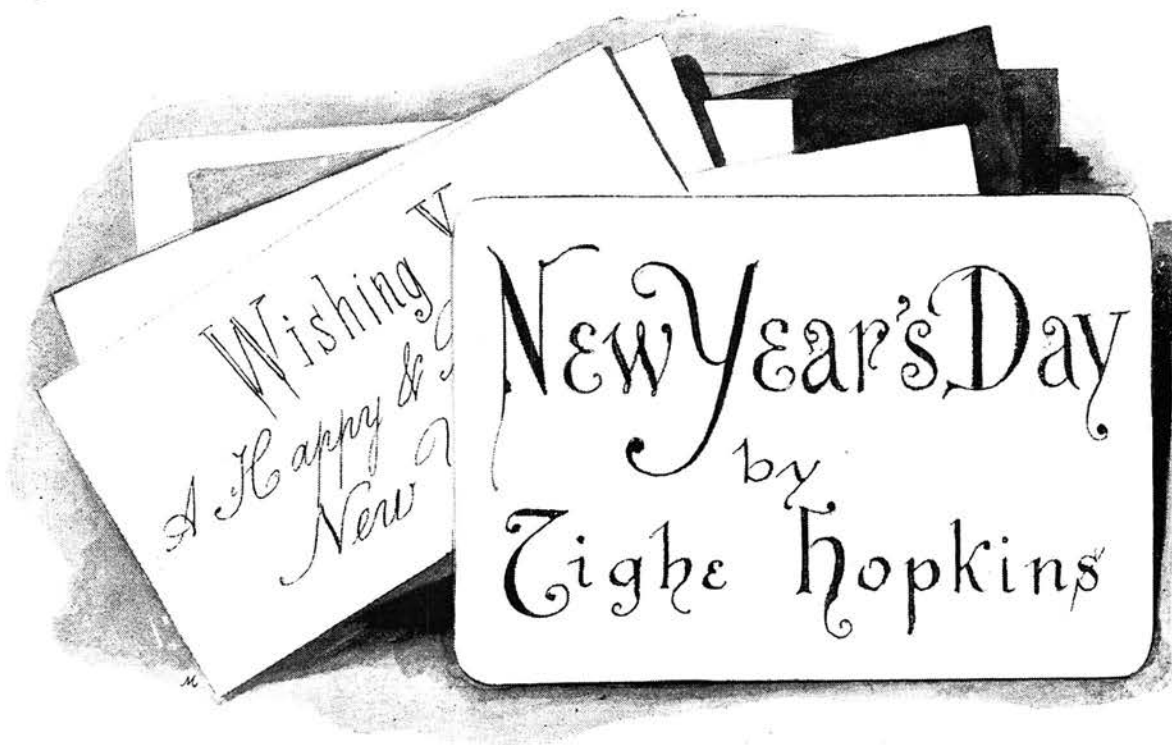 Wishing
A Happy &
New
New Year's Day
by
Tighe Hopkins
M